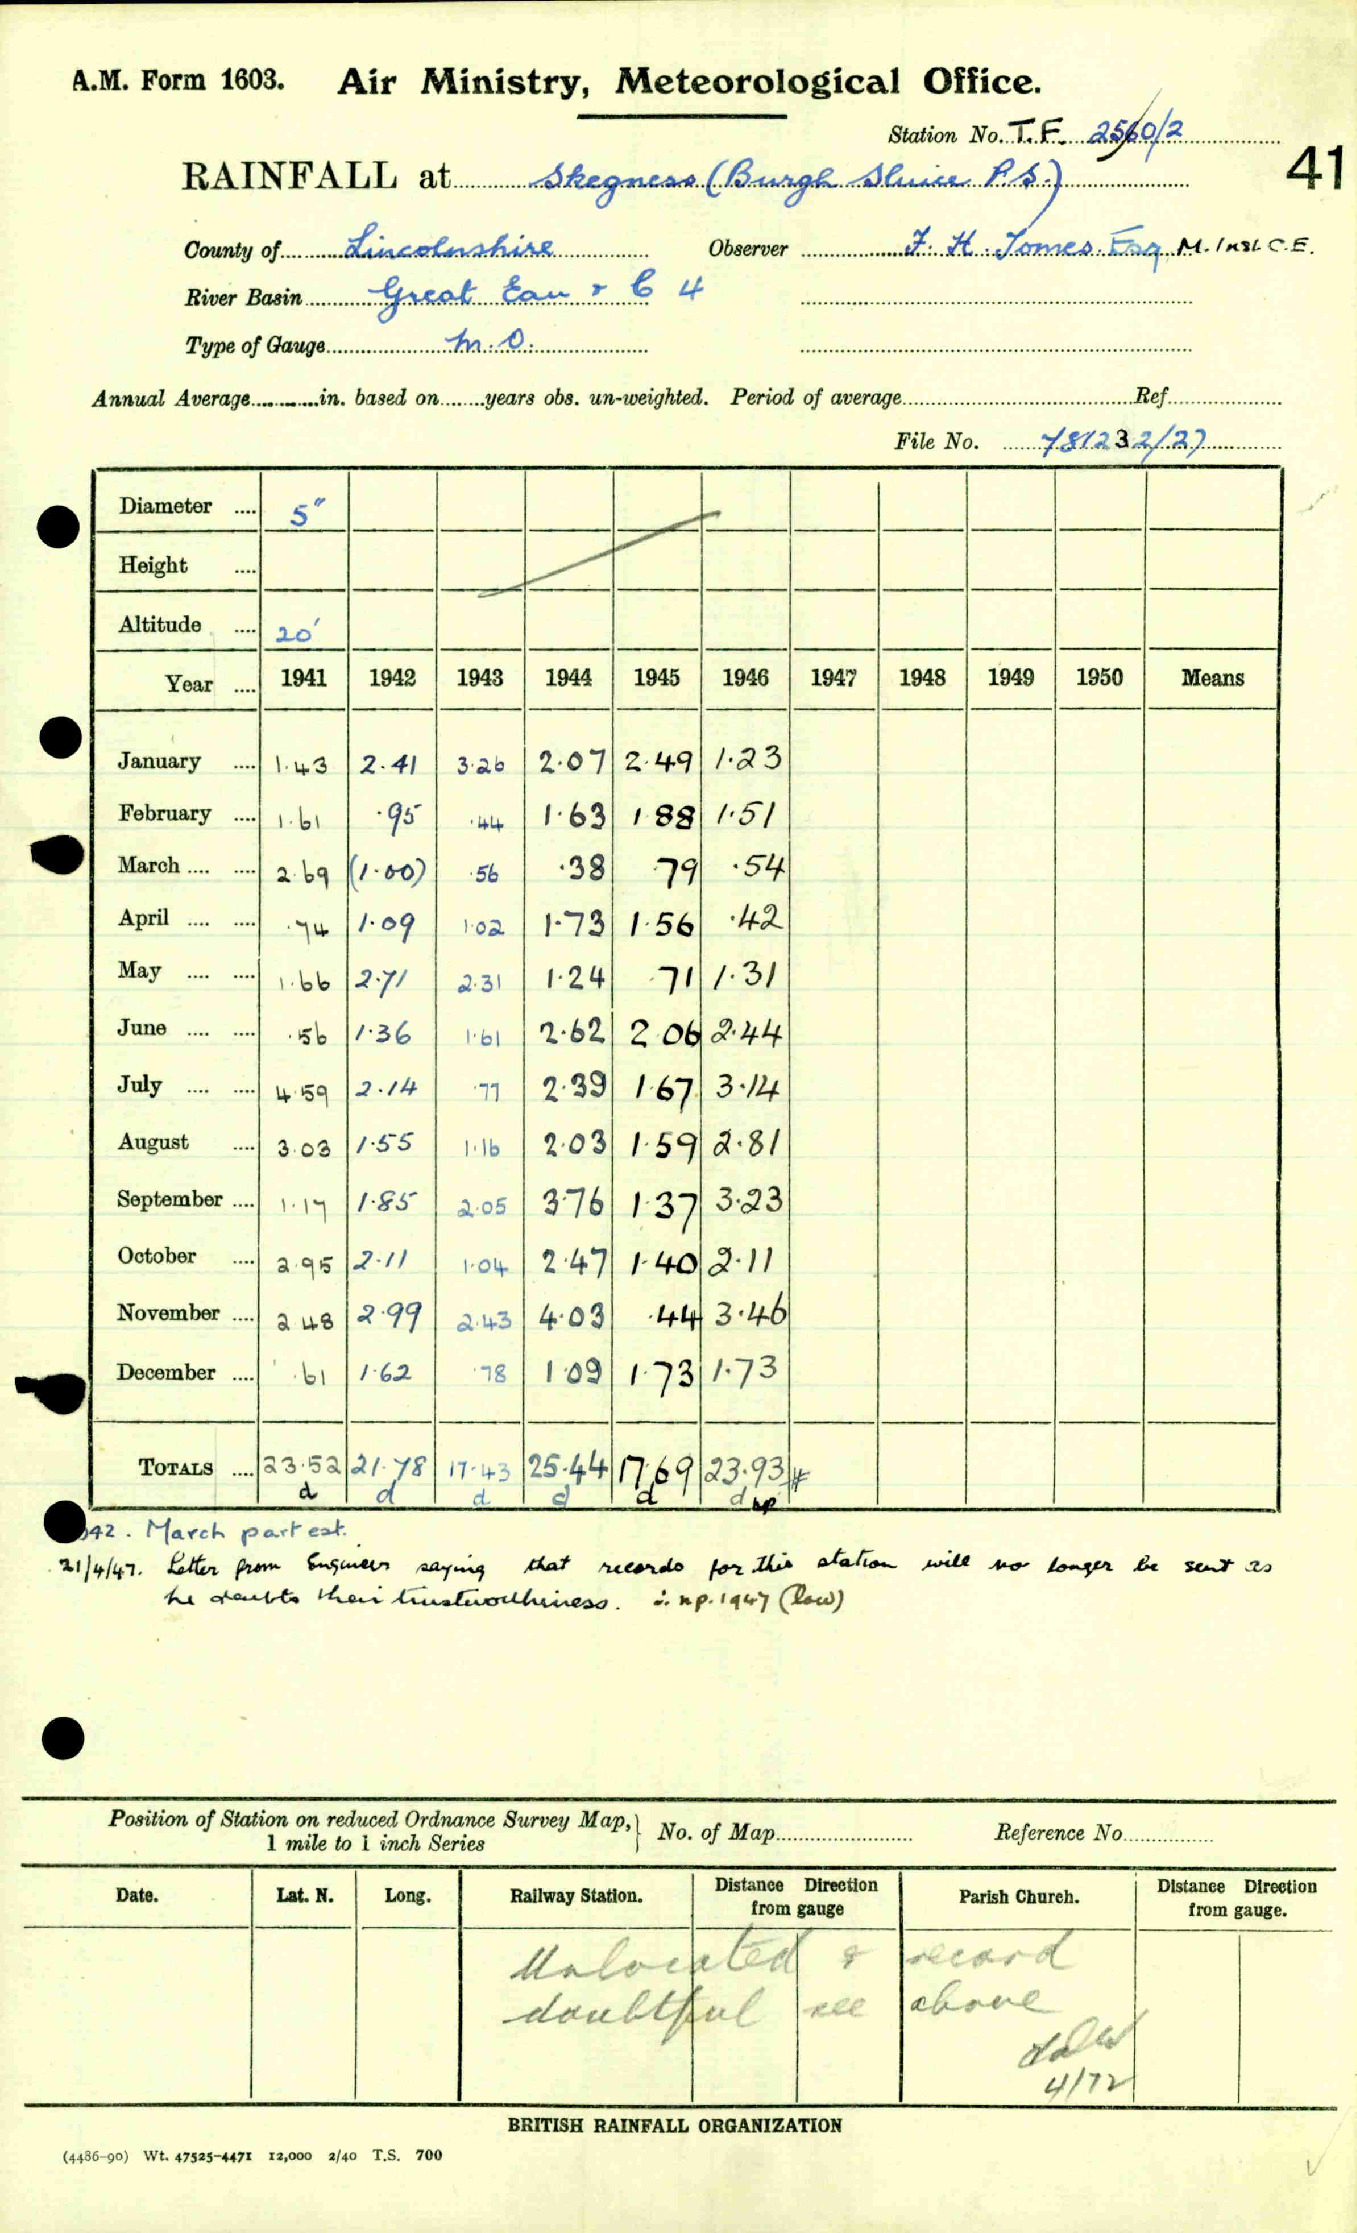 A.M. Form 1603. Air Ministry, Meteorological Office.
Station No. T.F. 2560/2
41
RAINFALL at Skegness (Burgh Sluice P.S.)
County of Lincolnshire Observer F. H. Tomes Esq M. Inst. C.E.
River Basin Great Eau & C 4
Type of Gauge M.O.
Annual Average in. based on years obs. un-weighted. Period of average Ref
File No. 781232/27
Diameter 5"
Height
Altitude 20'
Year 1941 1942 1943 1944 1945 1946 1947 1948 1949 1950 Means
January 1.43 2.41 3.26 2.07 2.49 1.23
February 1.61 .95 .44 1.63 1.88 1.51
March 2.69 (1.00) .56 .38 .79 .54
April .74 1.09 1.02 1.73 1.56 .42
May 1.66 2.71 2.31 1.24 .71 1.31
June .56 1.36 1.61 2.62 2.06 2.44
July 4.59 2.14 .77 2.39 1.67 3.14
August 3.03 1.55 1.16 2.03 1.59 2.81
September 1.17 1.85 2.05 3.76 1.37 3.23
October 2.95 2.11 1.04 2.47 1.40 2.11
November 2.48 2.99 2.43 4.03 .44 3.46
December .61 1.62 .78 1.09 1.73 1.73
TOTALS 23.52 21.78 17.43 25.44 17.69 23.93 #
d d d d d d np
942. March part est.
21/4/47. Letter from Engineer saying that records for this station will no longer be sent as
he doubts their trustworthiness. ∴ np. 1947 (low)
Position of Station on reduced Ordnance Survey Map, 1 mile to 1 inch Series } No. of Map Reference No.
Date. Lat. N. Long. Railway Station. Distance Direction from gauge Parish Church. Distance Direction from gauge.
Unlocated & record
doubtful see above
4/72
BRITISH RAINFALL ORGANIZATION
(4486-90) Wt. 47525-4471 12,000 2/40 T.S. 700